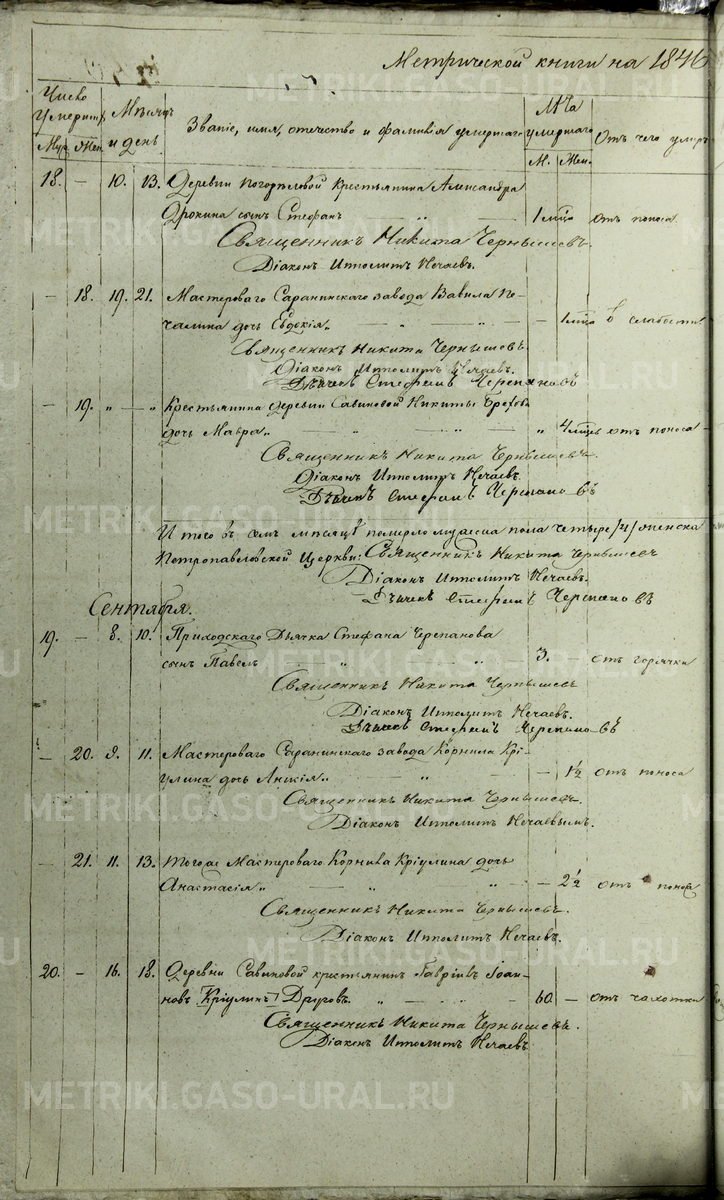 Метрической книги на 1846
Число умершихъ
Мѣсяцъ и день
Званіе, имя, отечество и фамилія умершаго
Лѣта умершаго
Отъ чего умеръ
Муж. Жен.
М. Жен.
18. — 10. 13. Деревни Погорѣловой крестьянина Александра
Дрокина сынъ Стефанъ „ 1 мѣсяца отъ поноса
Священникъ Никита Чернышевъ.
Діаконъ Ипполитъ Нечаевъ.
— 18. 19. 21. Мастероваго Саранинскаго завода Вавила По-
чалина дочь Евдокія „ — 1 мѣсяца слабости
Священникъ Никита Чернышевъ
Діаконъ Ипполитъ Нечаевъ.
Дьячекъ Стефанъ Черепановъ
— 19. „ — „ Крестьянина деревни Савиновой Никиты
дочь Мавра „ „ 4 мѣсяцъ отъ поноса
Священникъ Никита Чернышевъ.
Діаконъ Ипполитъ Нечаевъ.
Дьячекъ Стефанъ Черепановъ
Итого въ семъ мѣсяцѣ померло мужеска пола четыре /4/ женска
Петропавловской Церкви: Священникъ Никита Чернышевъ
Діаконъ Ипполитъ Нечаевъ.
Дьячекъ Стефанъ Черепановъ
Сентября.
19. — 8. 10. Приходскаго Дьячка Стефана Черепанова
сынъ Павелъ „ „ 3. — отъ горячки
Священникъ Никита Чернышевъ
Діаконъ Ипполитъ Нечаевъ.
Дьячекъ Стефанъ Черепановъ
— 20. 9. 11. Мастероваго Саранинскаго завода Корнила Крі-
улина дочь Анисія „ „ — 1½ отъ поноса
Священникъ Никита Чернышевъ.
Діаконъ Ипполитъ Нечаевымъ.
— 21. 11. 13. Тогоже Мастероваго Корнила Кріулина дочь
Анастасія „ „ „ — 2½ отъ поноса
Священникъ Никита Чернышевъ.
Діаконъ Ипполитъ Нечаевъ.
20. — 16. 18. Деревни Савиновой крестьянинъ Гавріилъ Іоан-
новъ [Кріулинъ] Друговъ. „ „ 60. — отъ чахотки
Священникъ Никита Чернышевъ.
Діаконъ Ипполитъ Нечаевъ
METRIKI.GASO-URAL.RU